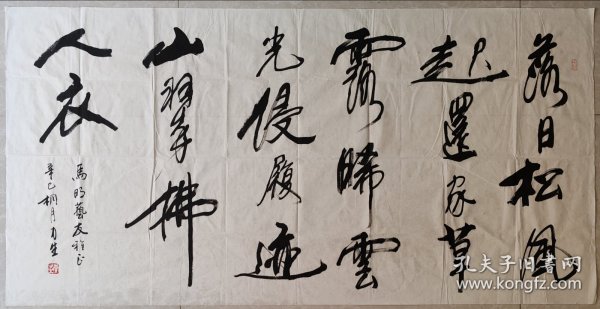 落日松風
起還家草
露晞雲
光侵履迹
山翠拂
人衣
馬明藝友雅正
辛巳桐月
孔夫子旧书网
www.kongfz.com